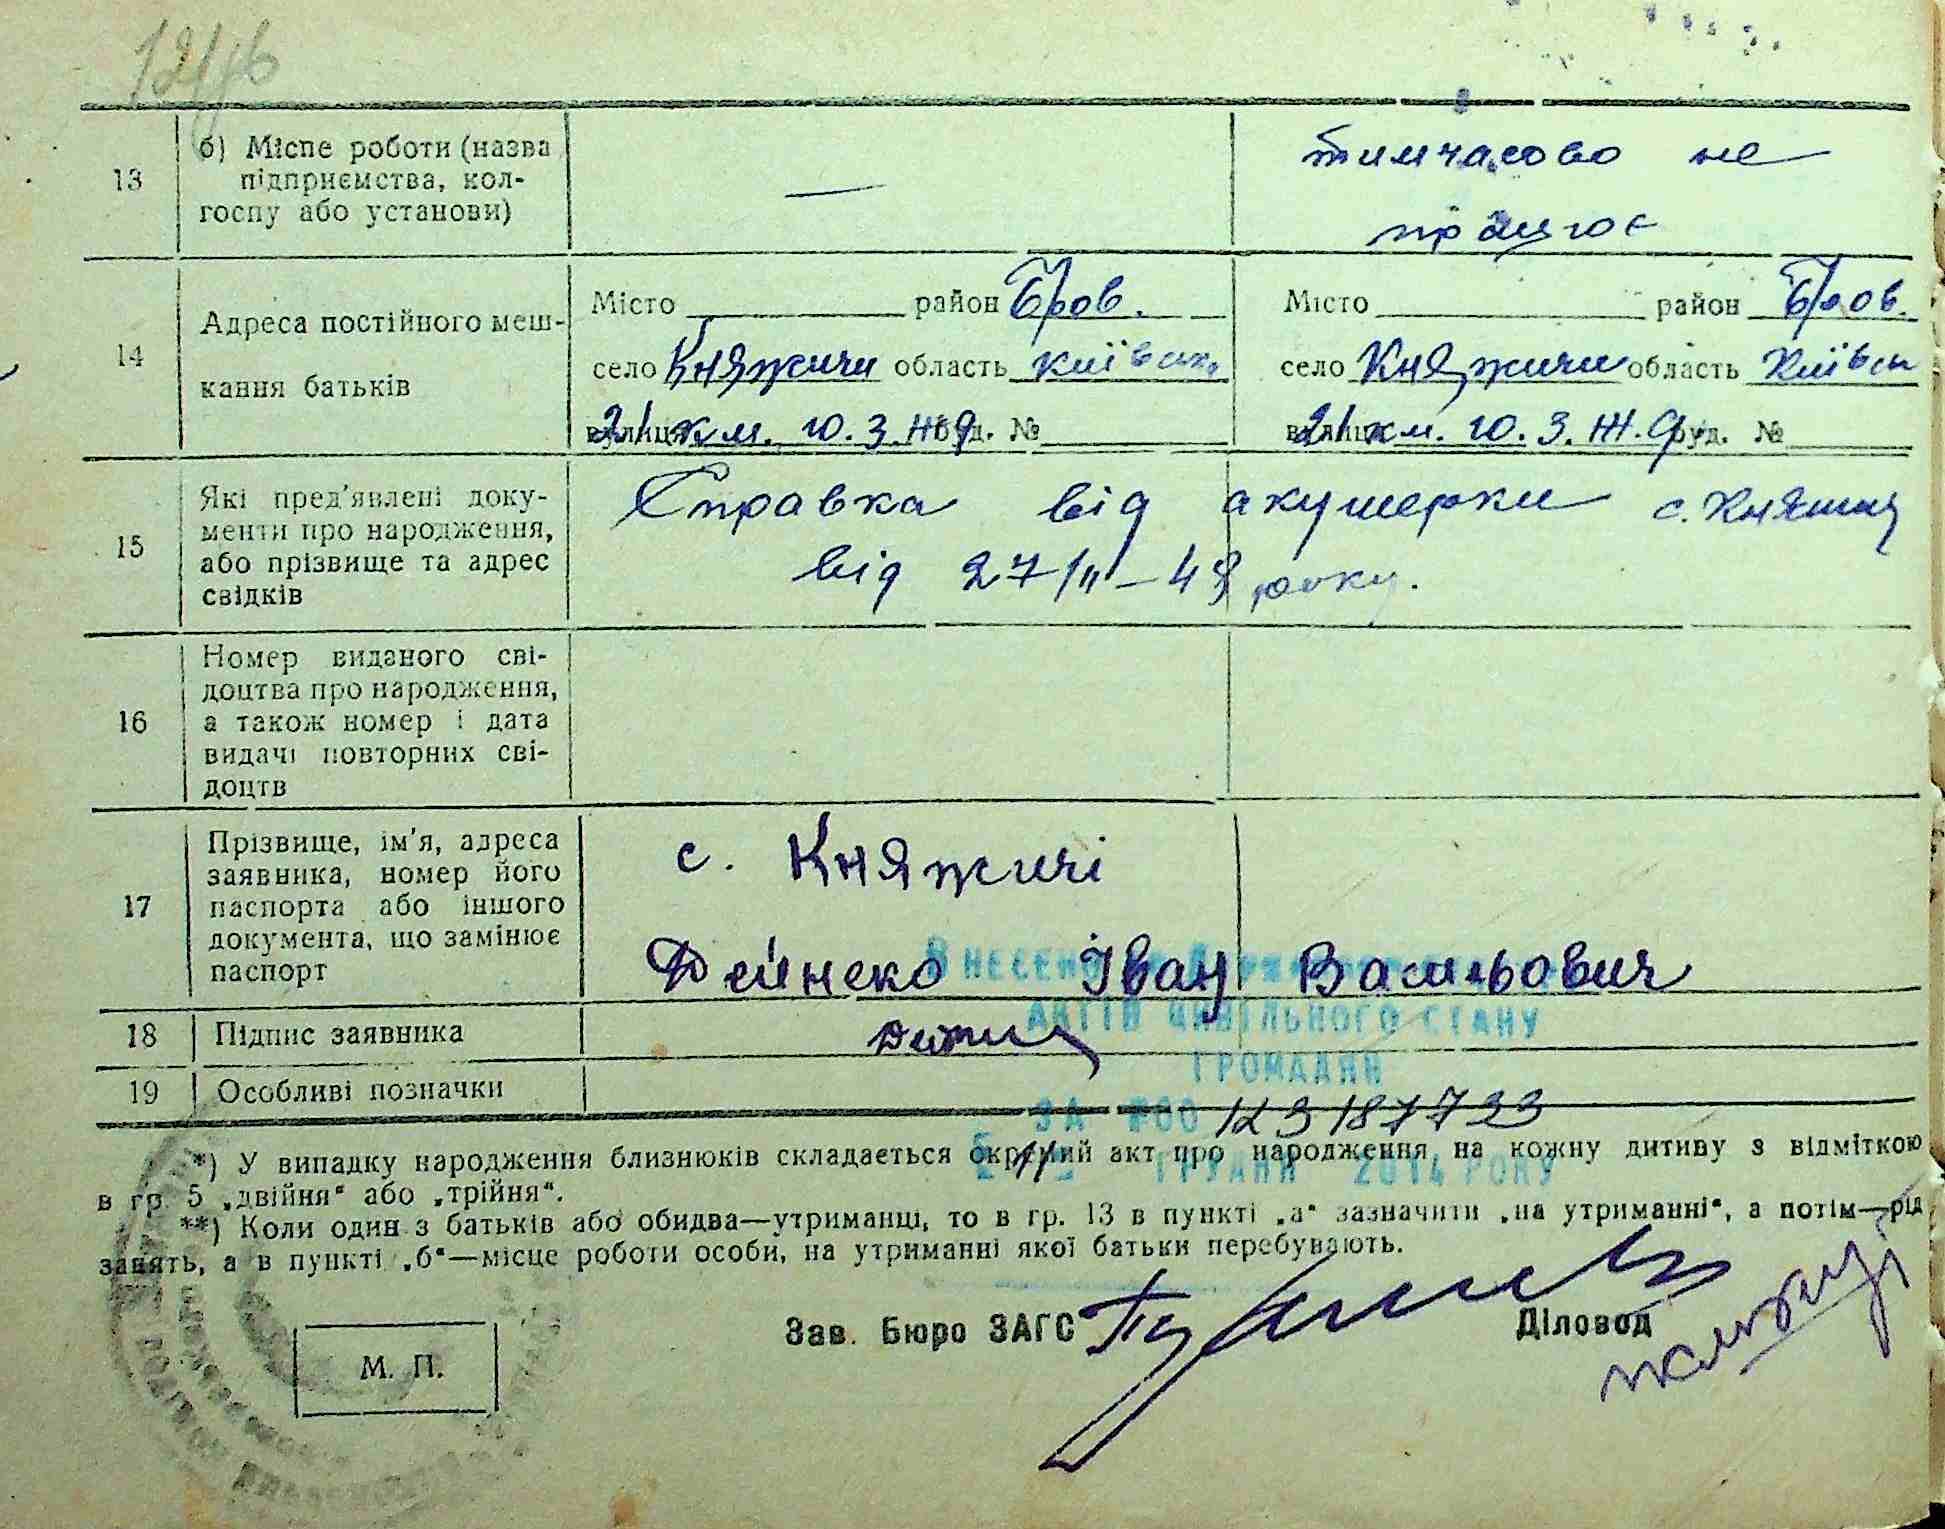 13
б) Місце роботи (назва
підприємства, кол-
госпу або установи)
—
тимчасово не
працює
14
Адреса постійного меш-
кання батьків
Місто район Бров.
село Княжичи область Київськ.
21 км. Ю. З. Ж. д. буд. №
Місто район Бров.
село Княжичи область Київськ
21 км. Ю. З. Ж. д. буд. №
15
Які пред'явлені доку-
менти про народження,
або прізвище та адрес
свідків
Справка від акушерки с. Княжич
від 27/II – 48 року.
16
Номер виданого сві-
доцтва про народження,
а також номер і дата
видачі повторних сві-
доцтв
17
Прізвище, ім'я, адреса
заявника, номер його
паспорта або іншого
документа, що замінює
паспорт
с. Княжичі
Дейнеко Іван Васильович
18
Підпис заявника
19
Особливі позначки
ВНЕСЕНО
АКТІВ ЦИВІЛЬНОГО СТАНУ
ГРОМАДЯН
ЗА №00 123187733
11 ГРУДНЯ 2014 РОКУ
*) У випадку народження близнюків складається окремий акт про народження на кожну дитину з відміткою
в гр. 5 „двійня“ або „трійня“.
**) Коли один з батьків або обидва—утриманці, то в гр. 13 в пункті „а“ зазначити „на утриманні“, а потім—рід
занять, а в пункті „б“—місце роботи особи, на утриманні якої батьки перебувають.
М. П.
Зав. Бюро ЗАГС
Діловод